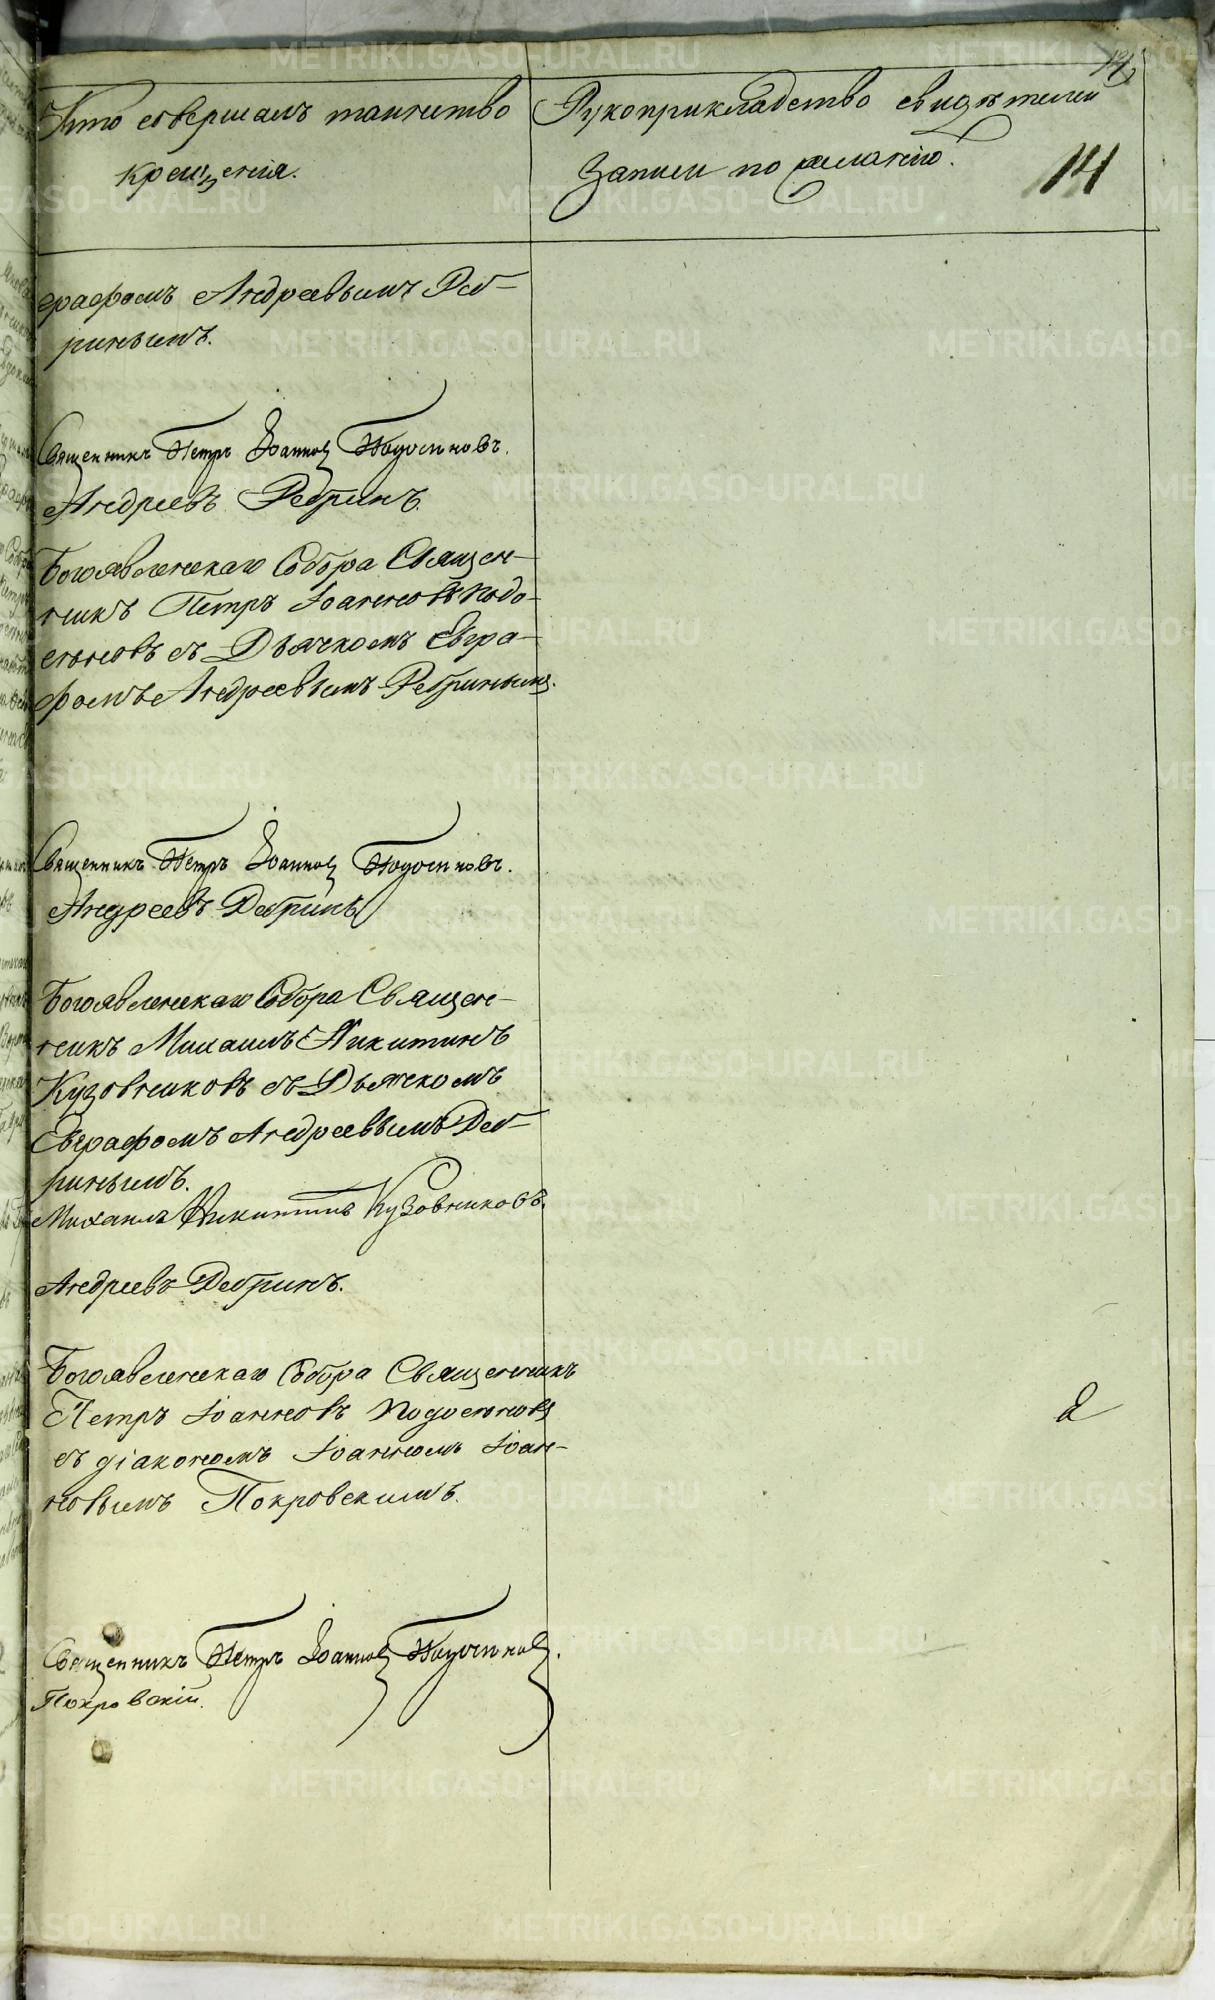 Кто совершалъ таинство
крещенія.
Рукоприкладство свидѣтелей
записи по желанію.
14
графомъ Андреевымъ Реб-
ринымъ.
Священникъ Петръ Іоанновъ Подосеновъ.
Андреевъ Ребринъ.
Богоявленскаго Собора Священ-
никъ Петръ Іоанновъ Подо-
сеновъ съ Дьячкомъ Евгра-
фомъ Андреевымъ Ребринымъ.
Священникъ Петръ Іоанновъ Подосеновъ.
Андреевъ Ребринъ
Богоявленскаго Собора Священ-
никъ Михаилъ Никитинъ
Кузовниковъ съ Дьячкомъ
Евграфомъ Андреевымъ Реб-
ринымъ.
Михаилъ Никитинъ Кузовниковъ.
Андреевъ Ребринъ.
Богоявленскаго Собора Священникъ
Петръ Іоанновъ Подосеновъ
съ діакономъ Іоанномъ Іоан-
новымъ Покровскимъ.
Священникъ Петръ Іоанновъ Подосеновъ.
Покровскій.
METRIKI.GASO-URAL.RU